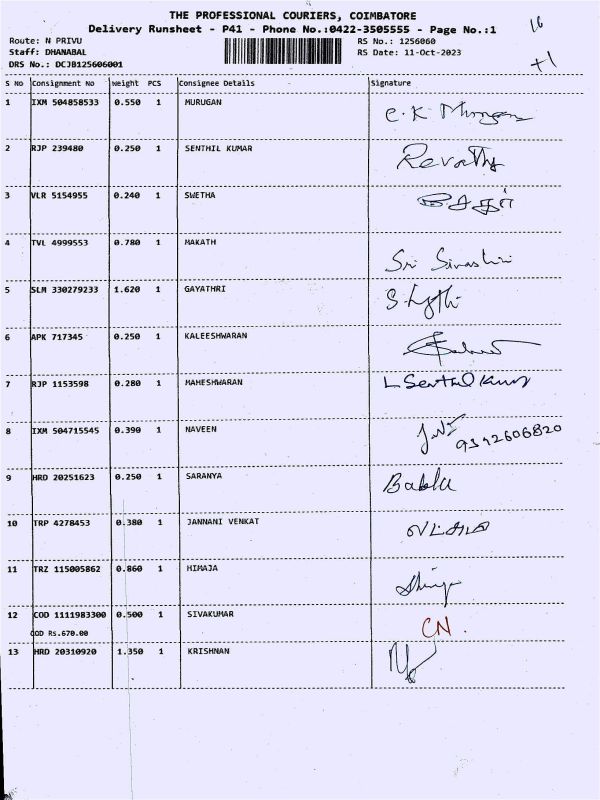 THE PROFESSIONAL COURIERS, COIMBATORE
Delivery Runsheet - P41 - Phone No.:0422-3505555 - Page No.:1
16
+1
Route: N PRIVU RS No.: 1256060
Staff: DHANABAL RS Date: 11-Oct-2023
DRS No.: DCJB125606001
S No Consignment No Weight PCS Consignee Details Signature
1 IXM 504858533 0.550 1 MURUGAN C.K
2 RJP 239480 0.250 1 SENTHIL KUMAR Revathy
3 VLR 5154955 0.240 1 SWETHA
4 TVL 4999553 0.780 1 MAKATH Sri
5 SLM 330279233 1.620 1 GAYATHRI
6 APK 717345 0.250 1 KALEESHWARAN
7 RJP 1153598 0.280 1 MAHESHWARAN L Senthil Kumar
8 IXM 504715545 0.390 1 NAVEEN 9342606820
9 HRD 20251623 0.250 1 SARANYA Bablu
10 TRP 4278453 0.380 1 JANNANI VENKAT
11 TRZ 115005862 0.860 1 HIMAJA
12 COD 1111983300 0.500 1 SIVAKUMAR CN.
COD Rs.670.00
13 HRD 20310920 1.350 1 KRISHNAN